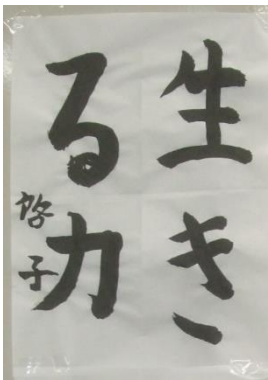 生き
る力
啓子